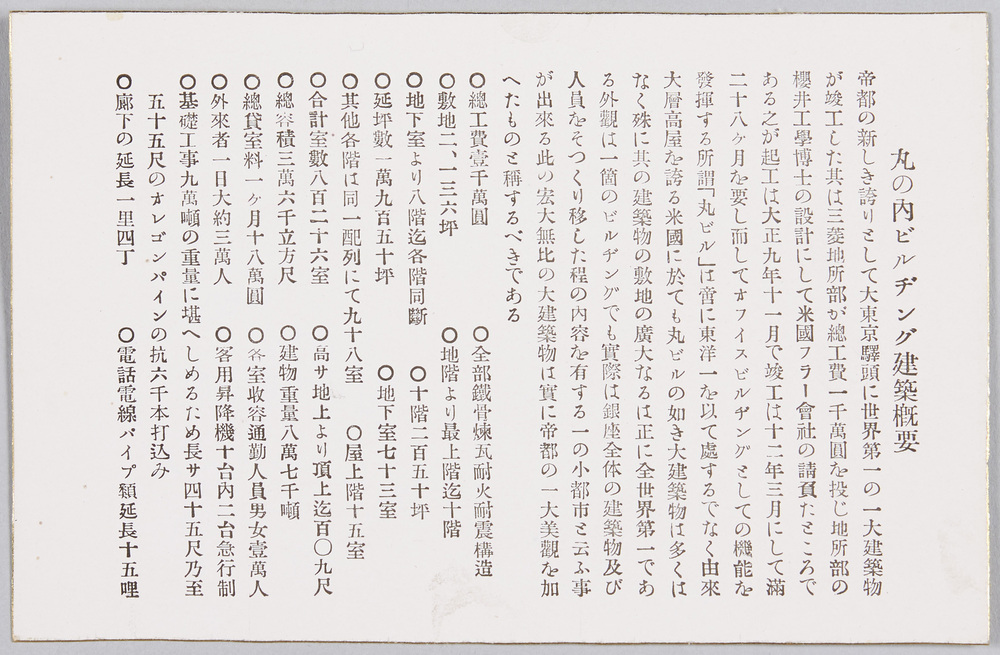 丸の內ビルヂング建築槪要
帝都の新しき誇りとして大東京驛頭に世界第一の一大建築物
が竣工した其は三菱地所部が總工費一千萬圓を投じ地所部の
櫻井工學博士の設計にして米國フラー會社の請負たところで
ある之が起工は大正九年十一月で竣工は十二年三月にして滿
二十八ヶ月を要し而してオフイスビルヂングとしての機能を
發揮する所謂「丸ビル」は啻に東洋一を以て處するでなく由來
大層高屋を誇る米國に於ても丸ビルの如き大建築物は多くは
なく殊に其の建築物の敷地の廣大なるは正に全世界第一であ
る外觀は一箇のビルヂングでも實際は銀座全体の建築物及び
人員をそつくり移した程の內容を有する一の小都市と云ふ事
が出來る此の宏大無比の大建築物は實に帝都の一大美觀を加
へたものと稱するべきである
○總工費壹千萬圓　○全部鐵骨煉瓦耐火耐震構造
○敷地二、一三六坪　○地階より最上階迄十階
○地下室より八階迄各階同斷　○十階二百五十坪
○延坪數一萬九百五十坪　○地下室七十三室
○其他各階は同一配列にて九十八室　○屋上階十五室
○合計室數八百二十六室　○高サ地上より頂上迄百〇九尺
○總容積三萬六千立方尺　○建物重量八萬七千噸
○總貸室料一ヶ月十八萬圓　○各室收容通勤人員男女壹萬人
○外來者一日大約三萬人　○客用昇降機十台內二台急行制
○基礎工事九萬噸の重量に堪へしめるため長サ四十五尺乃至
五十五尺のオレゴンパインの抗六千本打込み
○廊下の延長一里四丁　○電話電線パイプ類延長十五哩